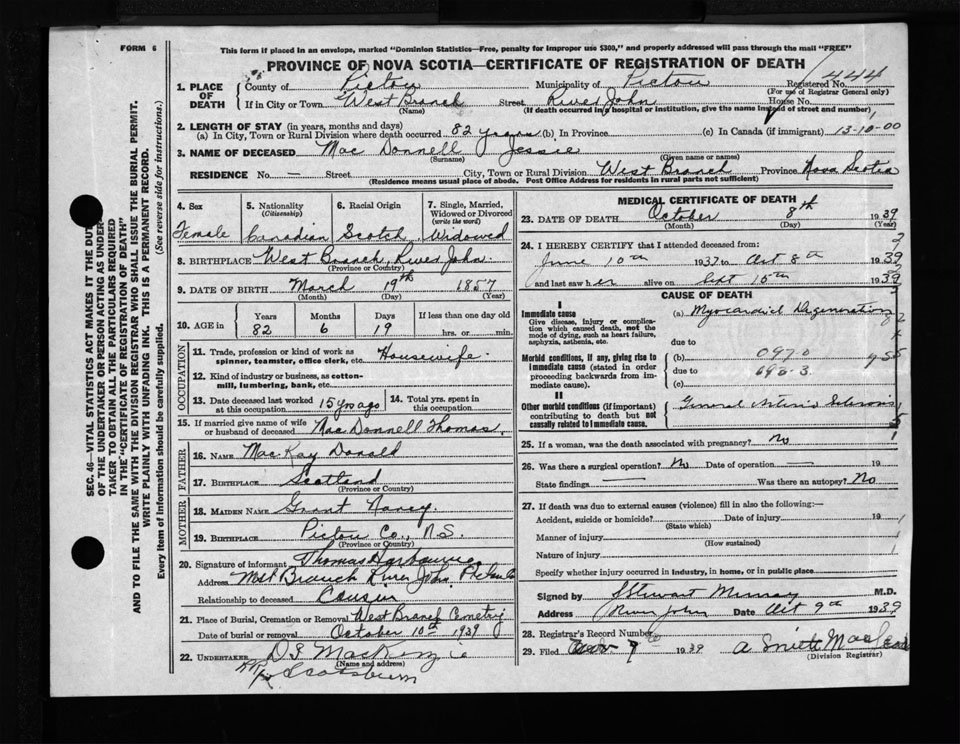 FORM 6
This form if placed in an envelope, marked "Dominion Statistics—Free, penalty for improper use $300," and properly addressed will pass through the mail "FREE"
PROVINCE OF NOVA SCOTIA—CERTIFICATE OF REGISTRATION OF DEATH
1. PLACE OF DEATH County of Pictou Municipality of Pictou Registered No. 444
(For use of Registrar General only)
If in City or Town West Branch Street River John House No.
(Name) (If death occurred in a hospital or institution, give the name instead of street and number)
2. LENGTH OF STAY (in years, months and days)
(a) In City, Town or Rural Division where death occurred 82 years (b) In Province (c) In Canada (if immigrant) 13-10-00
3. NAME OF DECEASED Mac Donnell Jessie
(Surname) (Given name or names)
RESIDENCE No. — Street City, Town or Rural Division West Branch Province Nova Scotia
(Residence means usual place of abode. Post Office Address for residents in rural parts not sufficient)
4. Sex Female
5. Nationality (Citizenship) Canadian
6. Racial Origin Scotch
7. Single, Married, Widowed or Divorced (write the word) Widowed
8. BIRTHPLACE West Branch, River John.
(Province or Country)
9. DATE OF BIRTH March 19th 1857
(Month) (Day) (Year)
10. AGE in Years Months Days If less than one day old
82 6 19 hrs. or min.
OCCUPATION
11. Trade, profession or kind of work as spinner, teamster, office clerk, etc. Housewife.
12. Kind of industry or business, as cotton-mill, lumbering, bank, etc.
13. Date deceased last worked at this occupation 15 yrs ago 14. Total yrs. spent in this occupation
15. If married give name of wife or husband of deceased Mac Donnell Thomas.
FATHER
16. NAME Mac Kay Donald
17. BIRTHPLACE Scotland
(Province or Country)
MOTHER
18. MAIDEN NAME Grant Nancy.
19. BIRTHPLACE Pictou Co., N.S.
(Province or Country)
20. Signature of informant Thomas
Address West Branch River John, Pictou Co
Relationship to deceased Cousin
21. Place of Burial, Cremation or Removal West Branch Cemetery
Date of burial or removal October 10th 1939
22. UNDERTAKER D F MacKenzie
(Name and address)
Scotsburn
MEDICAL CERTIFICATE OF DEATH
23. DATE OF DEATH October 8th 1939
(Month) (Day) (Year)
24. I HEREBY CERTIFY that I attended deceased from:
June 10th 1937 to Oct 8th 1939
and last saw her alive on Sept 15th 1939
CAUSE OF DEATH
I
Immediate cause
Give disease, injury or complication which caused death, not the mode of dying, such as heart failure, asphyxia, asthenia, etc.
(a) Myocardial Degeneration
due to
Morbid conditions, if any, giving rise to immediate cause (stated in order proceeding backwards from immediate cause).
(b) 097.0
due to 693-3
(c)
II
Other morbid conditions (if important) contributing to death but not causally related to immediate cause.
General Arterio Sclerosis
25. If a woman, was the death associated with pregnancy? No
26. Was there a surgical operation? No Date of operation — 19
State findings — Was there an autopsy? No
27. If death was due to external causes (violence) fill in also the following:—
Accident, suicide or homicide? Date of injury 19
(State which)
Manner of injury
(How sustained)
Nature of injury
Specify whether injury occurred in industry, in home, or in public place
Signed by Stewart Murray M.D.
Address River John Date Oct 9th 1939
28. Registrar's Record Number
29. Filed 9 1939
(Division Registrar)
SEC. 46—VITAL STATISTICS ACT MAKES IT THE DUTY
OF THE UNDERTAKER OR PERSON ACTING AS UNDER-
TAKER TO OBTAIN ALL THE PARTICULARS REQUIRED
IN THE "CERTIFICATE OF REGISTRATION OF DEATH"
AND TO FILE THE SAME WITH THE DIVISION REGISTRAR WHO SHALL ISSUE THE BURIAL PERMIT.
WRITE PLAINLY WITH UNFADING INK. THIS IS A PERMANENT RECORD.
Every item of Information should be carefully supplied. (See reverse side for instructions.)